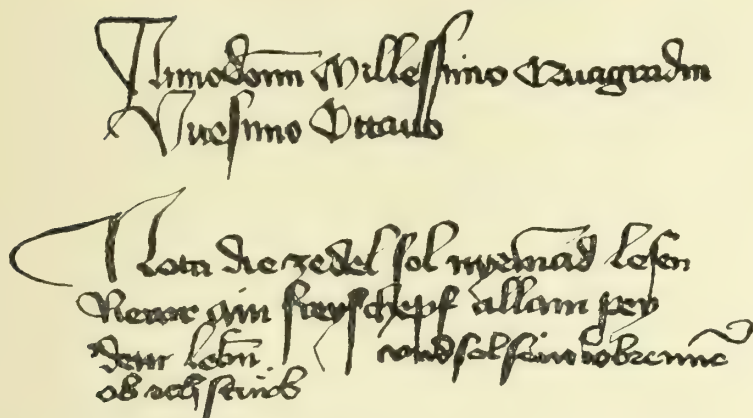 Anno dom̄ Millessimo Quagradm
Vicesimo Octavo
Nota die zedel sol nyemād lesen
Newr ain freyschepf allain pey
dem lebn̄. vnd sol sein vobrennē
ob ich stirb